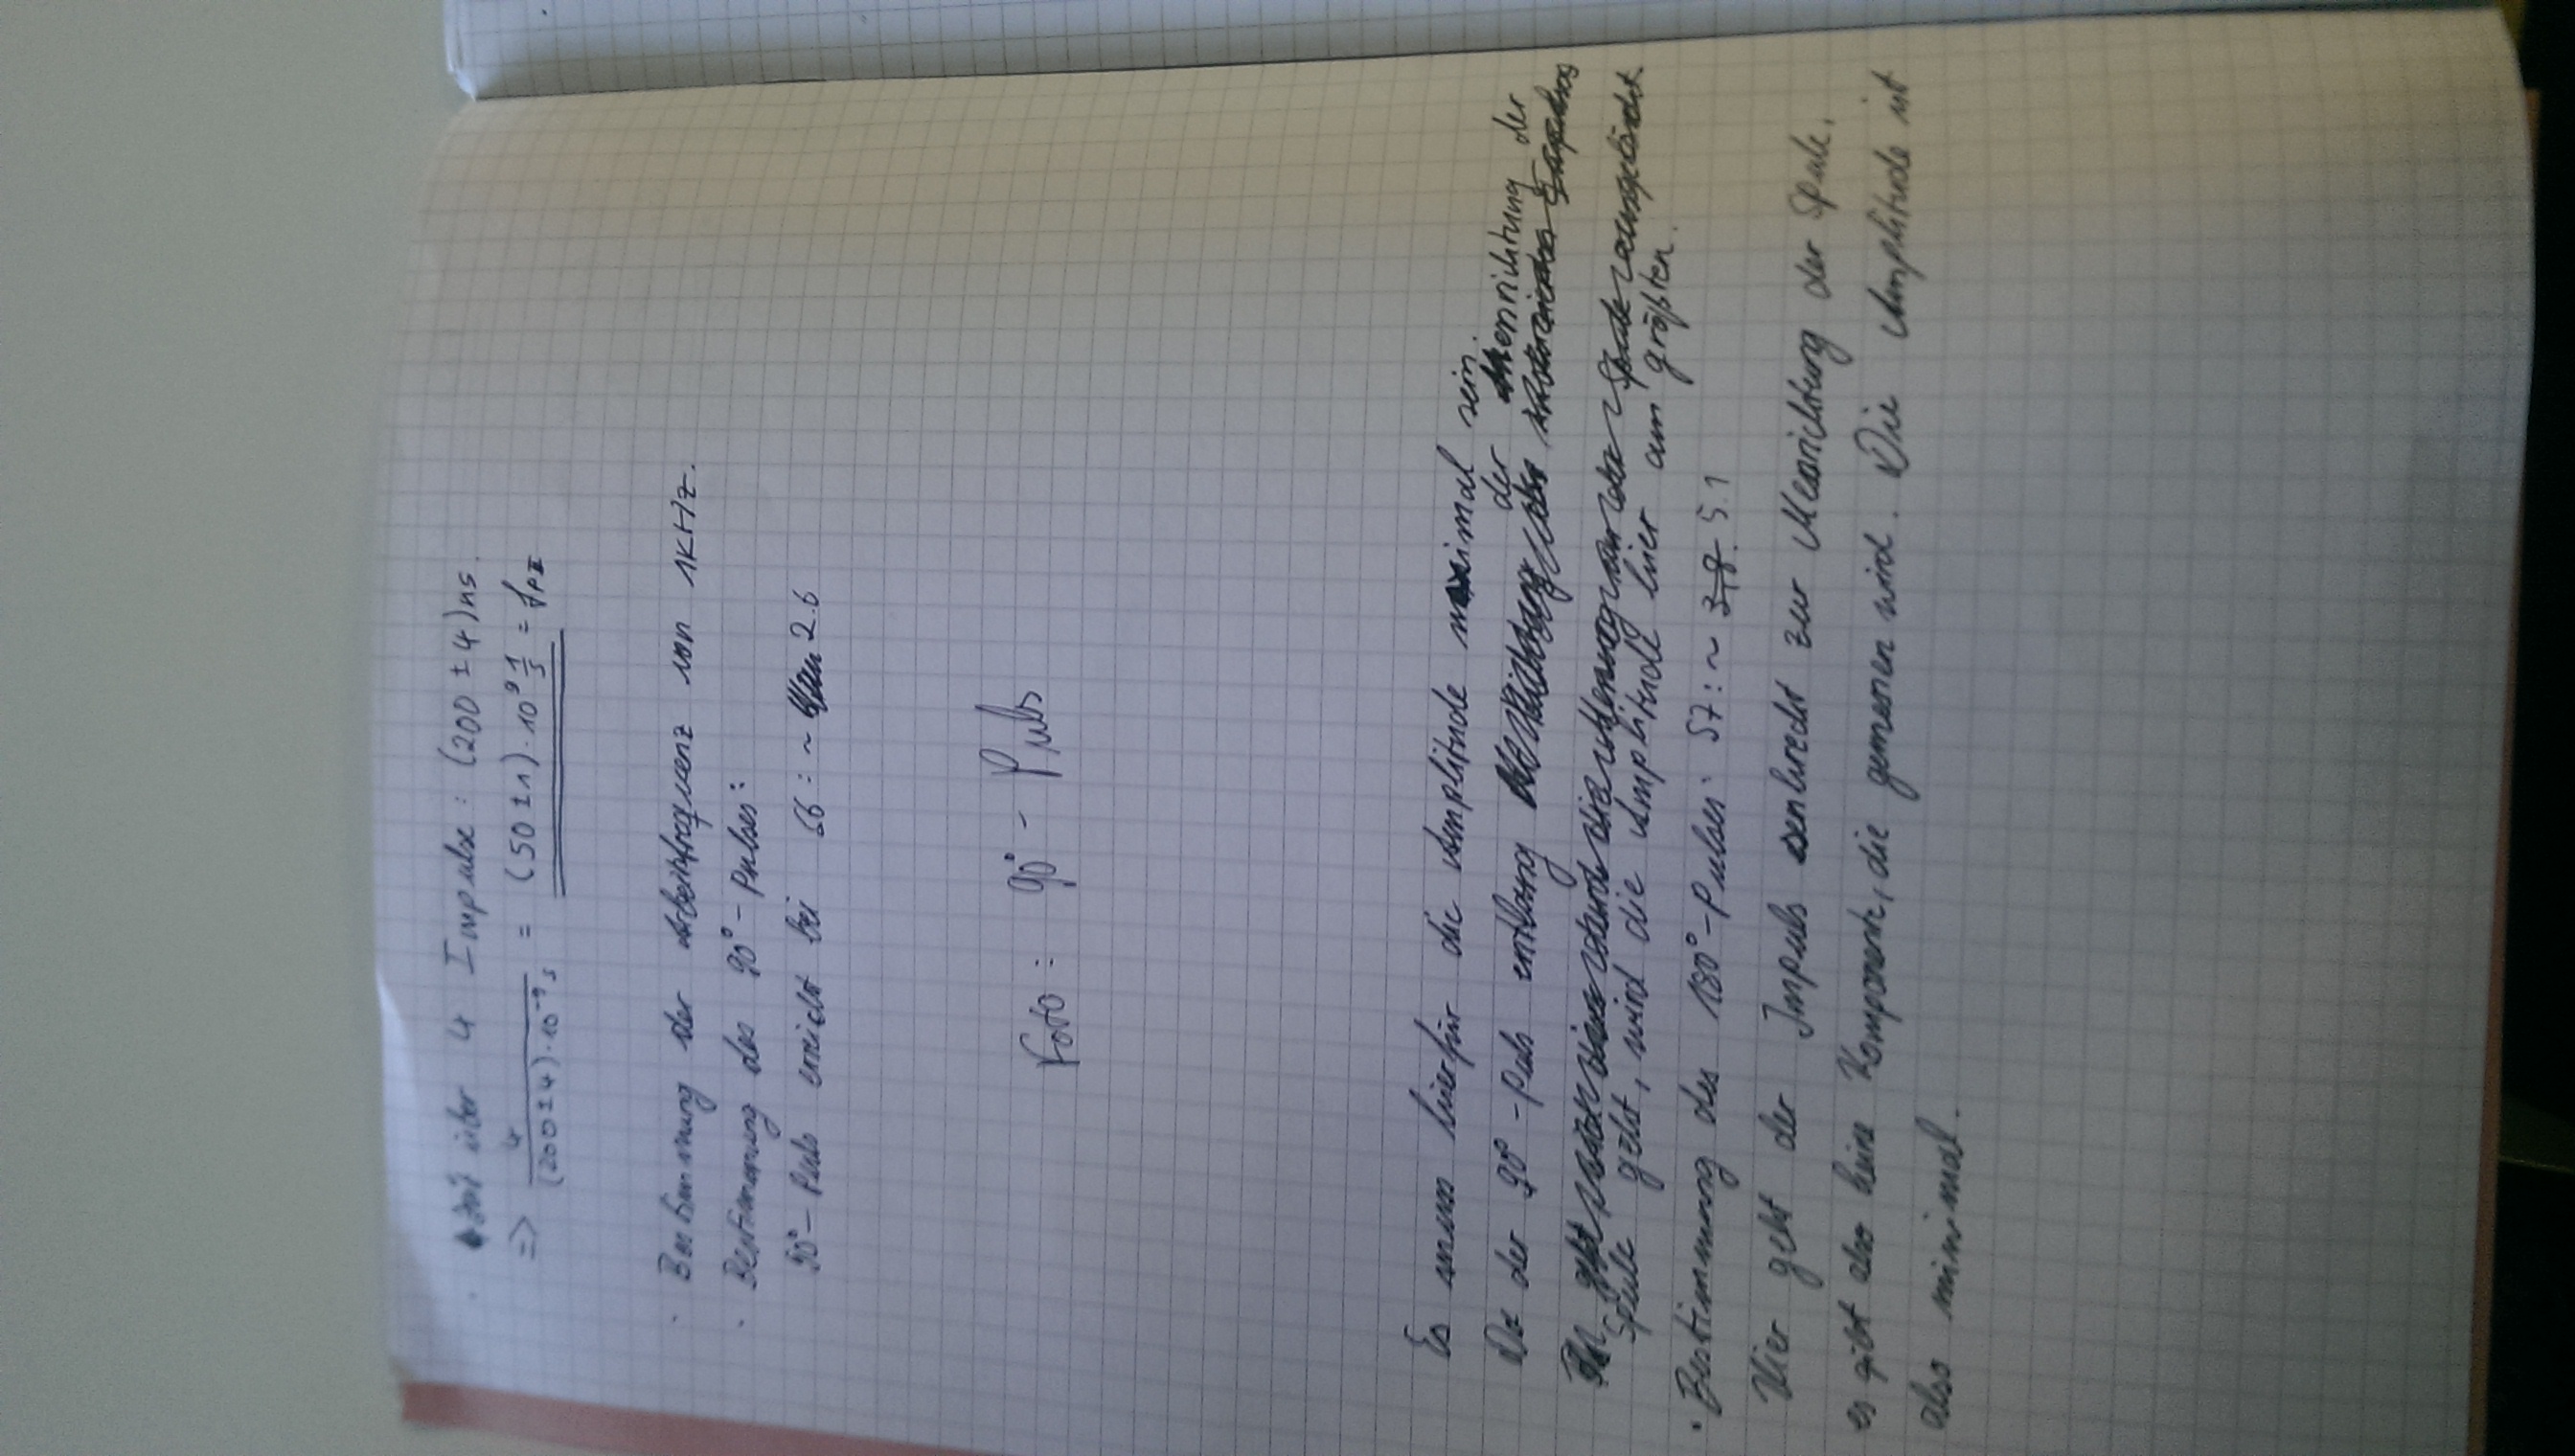 · Zeit über 4 Impulse : (200 ± 4) ns.
=> 4 / (200 ± 4) · 10⁻⁹ s = (50 ± 1) · 10⁹ 1/s = f_PII
· Bestimmung der Arbeitsfrequenz von 1KHz.
· Bestimmung des 90° - Pulses :
90° - Puls erreicht bei 56 : ~ 2.6
Foto : 90° - Puls
Es muss hierfür die Amplitude maximal sein.
Da der 90° - Puls entlang der enrichtung der
Spule geht, wird die Amplitude hier am größten.
· Bestimmung des 180° - Pulses : 57 : ~ 3.8 5.1
Hier geht der Impuls senkrecht zur Messrichtung der Spule.
es gibt also keine Komponente, die gemessen wird. Die Amplitude ist
also minimal.